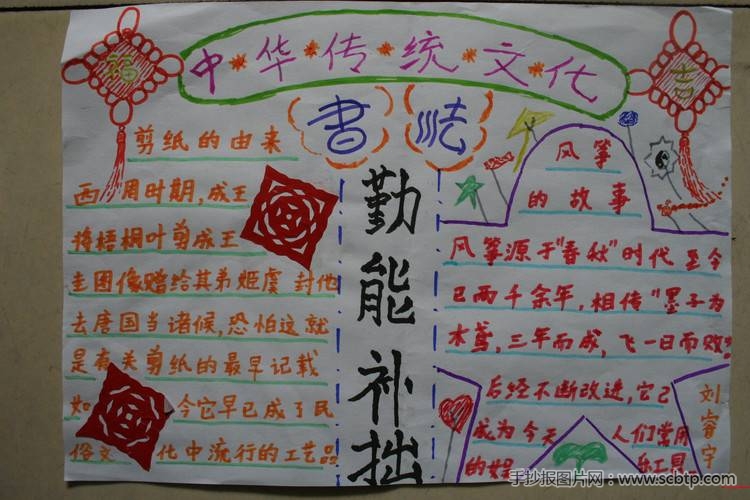 中华传统文化
福
吉
书法
剪纸的由来
西周时期,成王
将梧桐叶剪成王
圭图像赠给其弟姬虞 封他
去唐国当诸侯,恐怕这就
是有关剪纸的最早记载
如今它早已成了民
俗文化中流行的工艺品
勤能补拙
风筝
的故事
风筝源于"春秋"时代 至今
已两千余年,相传"墨子为
木鸢,三年而成,飞一日而败"
后经不断改进,它已
成为今天人们常用
的娱乐工具
刘睿宇
手抄报图片网:www.scbtp.com